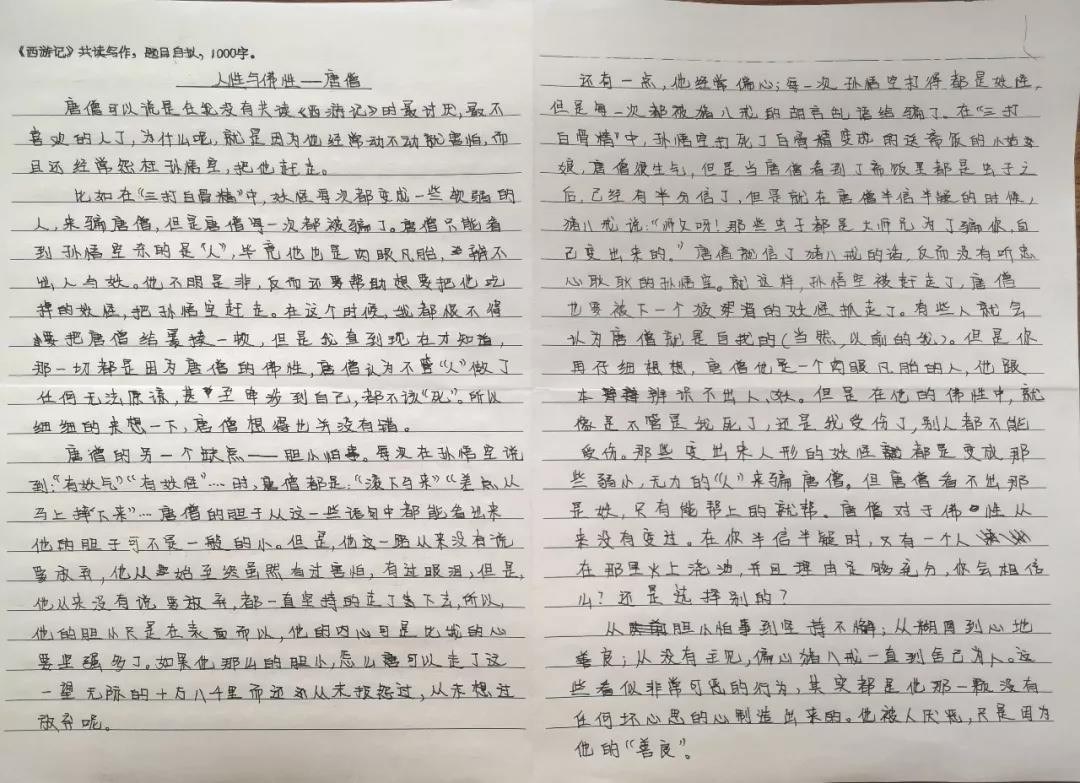 《西游记》共读写作，题目自拟，1000字。
人性与佛性——唐僧
唐僧可以说是在我没有共读《西游记》时最讨厌，最不
喜欢的人了，为什么呢，就是因为他经常动不动就害怕，而
且还经常怨枉孙悟空，把他赶走。
比如在“三打白骨精”中，妖怪每次都变成一些软弱的
人，来骗唐僧，但是唐僧每一次都被骗了。唐僧只能看
到孙悟空杀的是“人”，毕竟他也是肉眼凡胎，辨不
出人与妖。他不明是非，反而还要帮助想要把他吃
掉的妖怪，把孙悟空赶走。在这个时候，我都恨不得
要把唐僧给暴揍一顿，但是我直到现在才知道，
那一切都是因为唐僧的佛性，唐僧认为不管“人”做了
任何无法原谅，甚至牵涉到自己，都不该“死”。所以
细细的来想一下，唐僧想得也并没有错。
唐僧的另一个缺点——胆小怕事。每次在孙悟空说
到：“有妖气”“有妖怪”……时，唐僧都是：“滚下马来”“差点从
马上摔下来”…唐僧的胆子从这一些语句中都能看出来
他的胆子可不是一般的小。但是，他这一路从来没有说
要放弃，他从始至终虽然有过害怕，有过眼泪，但是，
他从来没有说要放弃，都一直坚持的走了下去，所以，
他的胆小只是在表面而以，他的内心可是比我的心
要坚强多了。如果他那么的胆小，怎么可以走了这
一望无际的十万八千里而还从未报怨过，从未想过
放弃呢。
还有一点，他经常偏心；每一次孙悟空打得都是妖怪，
但是每一次都被猪八戒的胡言乱语给骗了。在“三打
白骨精”中，孙悟空打死了白骨精变成的送斋饭的小姑
娘，唐僧很生气，但是当唐僧看到了斋饭里都是虫子之
后，已经有半分信了，但是就在唐僧半信半疑的时候，
猪八戒说：“师父呀！那些虫子都是大师兄为了骗你，自
己变出来的。”唐僧就信了猪八戒的话，反而没有听忠
心耿耿的孙悟空。就这样，孙悟空被赶走了，唐僧
也要被下一个披着的妖怪抓走了。有些人就会
认为唐僧就是自我的（当然，以前的我）。但是你
再仔细想想，唐僧他是一个肉眼凡胎的人，他跟
本辨识不出人、妖。但是在他的佛性中，就
像是不管是我死了，还是我受伤了，别人都不能
受伤。那些变出来人形的妖怪都是变成那
些弱小，无力的“人”来骗唐僧。但唐僧看不出那
是妖，只有能帮上的就帮。唐僧对于佛性从
来没有变过。在你半信半疑时，又有一个人
在那里火上浇油，并且理由足够充分，你会相信
么？还是选择别的？
从胆小怕事到坚持不懈；从糊图到心地
善良；从没有主见，偏心猪八戒一直到舍己为人。这
些看似非常可恶的行为，其实都是他那一颗没有
任何坏心思的心制造出来的。他被人厌恶，只是因为
他的“善良”。